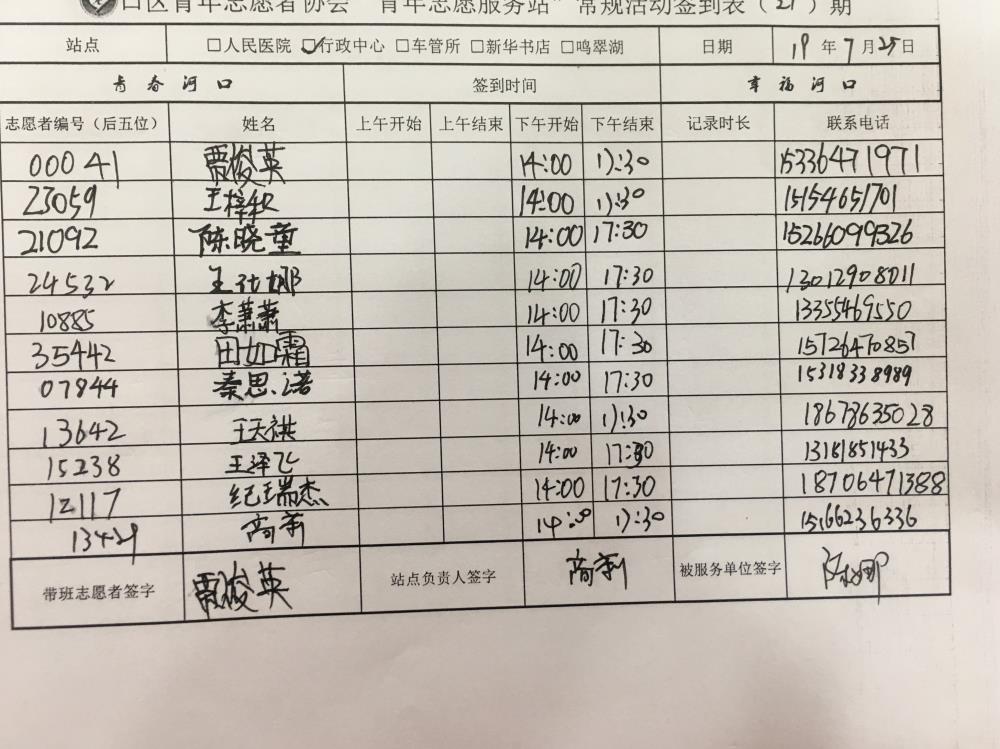 口区青年志愿者协会“青年志愿服务站”常规活动签到表（21）期
站点 □人民医院 ☑行政中心 □车管所 □新华书店 □鸣翠湖 日期 19年7月25日
青春河口 签到时间 幸福河口
志愿者编号（后五位） 姓名 上午开始 上午结束 下午开始 下午结束 记录时长 联系电话
00041 贾俊英 14:00 17:30 15336471971
23059 王梓 14:00 17:30 15154651701
21092 陈晓童 14:00 17:30 15266099326
24532 王 娜 14:00 17:30 13012908011
10885 李萧萧 14:00 17:30 13355469550
35442 田如霜 14:00 17:30 15726470857
07844 秦思诺 14:00 17:30 15318338989
13642 王天祺 14:00 17:30 18678635028
15238 王泽飞 14:00 17:30 13181851433
12117 纪瑞杰 14:00 17:30 18706471388
13429 商莉 14:00 17:30 15166236336
带班志愿者签字 贾俊英 站点负责人签字 商莉 被服务单位签字